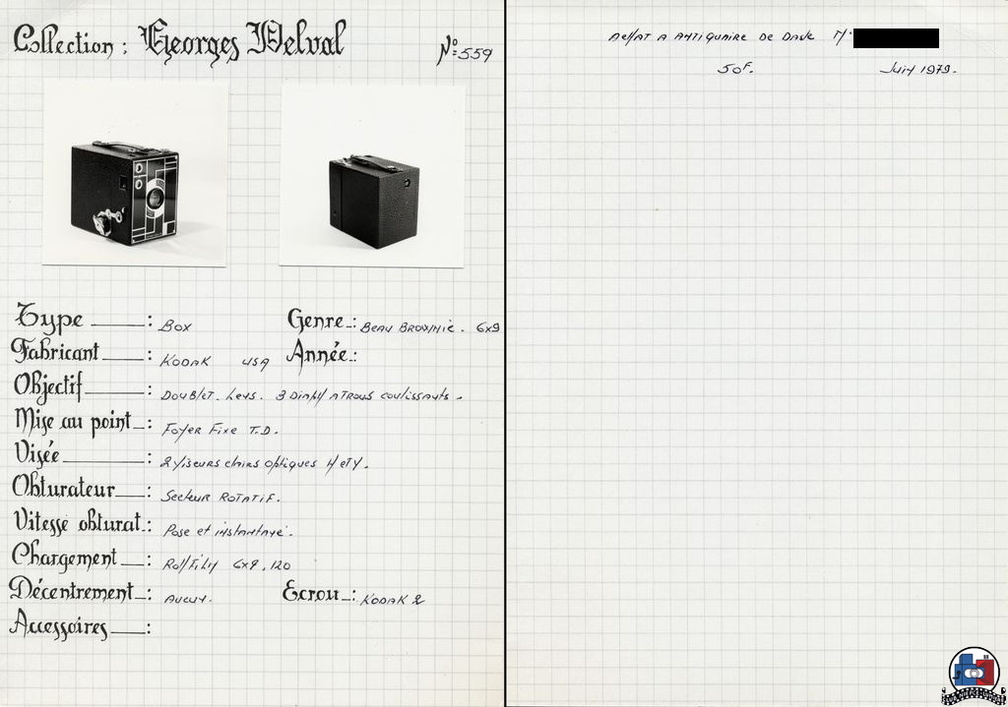 Collection : Georges Delval
N°: 559
Type : Box
Genre : Beau Brownie. 6x9
Fabricant : Kodak USA
Année :
Objectif : Doublet. Lens. 3 Diaph A Trous coulissants.
Mise au point : Foyer Fixe T.D.
Visée : 2 Viseurs clairs optiques H et V.
Obturateur : Secteur Rotatif.
Vitesse obturat. : Pose et instantané.
Chargement : Roll Film 6x9. 120
Décentrement : Aucun.
Ecrou : Kodak 2
Accessoires :
Achat A Antiquaire de Dave Mr
50F.
Juin 1979.